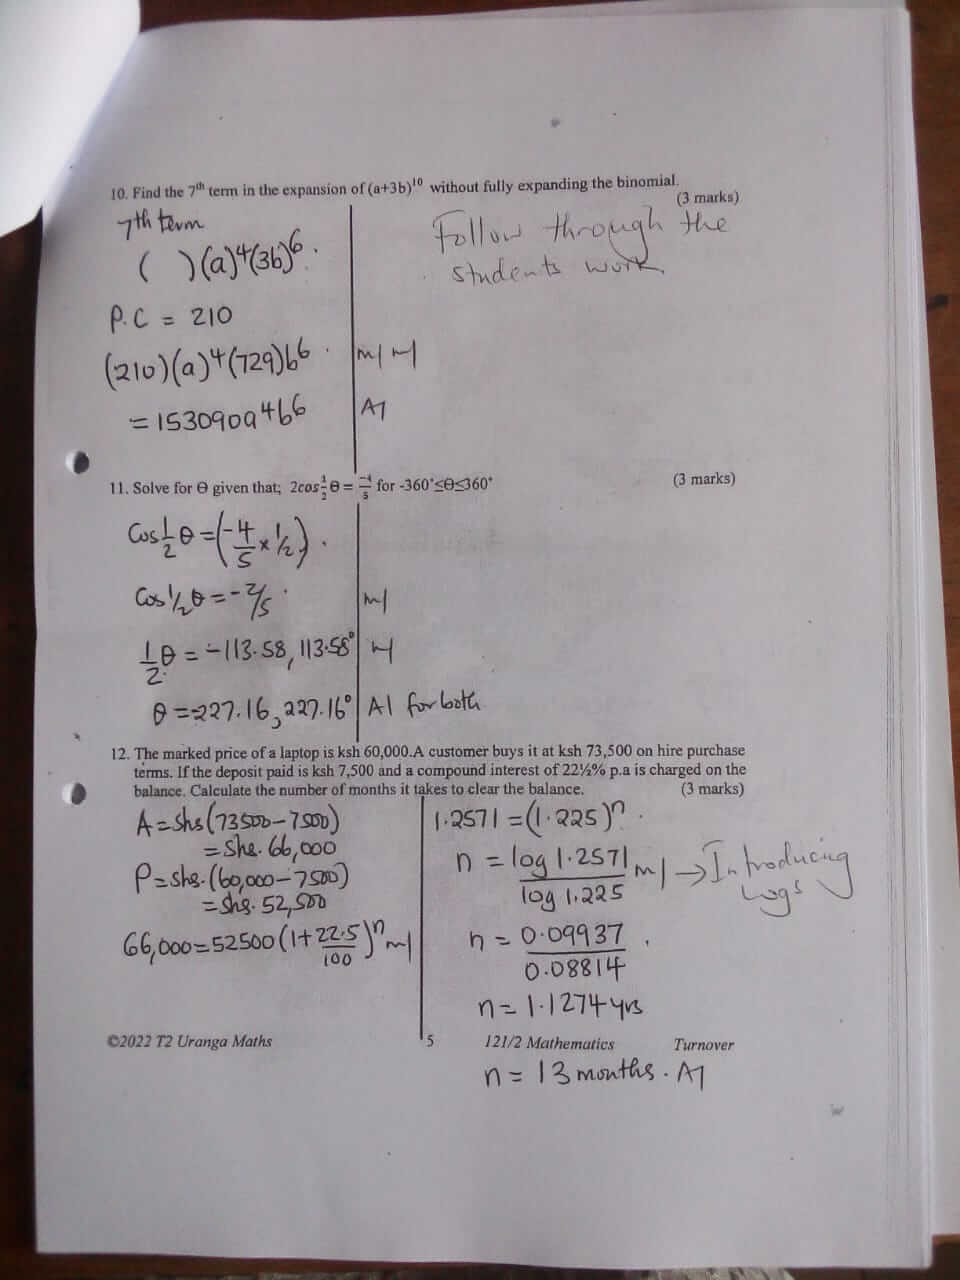 10. Find the 7th term in the expansion of (a+3b)¹⁰ without fully expanding the binomial.
(3 marks)
7th term
( )(a)⁴(3b)⁶.
P.C = 210
(210)(a)⁴(729)b⁶. M1 M1
= 153090a⁴b⁶ A1
Follow through the
students work.
11. Solve for Θ given that; 2cos½Θ = -4/5 for -360°≤Θ≤360° (3 marks)
Cos 1/2 θ = (-4/5 x 1/2).
Cos 1/2 θ = -2/5. M1
1/2 θ = -113.58, 113.58° M1
θ = -227.16, 227.16° A1 for both
12. The marked price of a laptop is ksh 60,000.A customer buys it at ksh 73,500 on hire purchase
terms. If the deposit paid is ksh 7,500 and a compound interest of 22½% p.a is charged on the
balance. Calculate the number of months it takes to clear the balance. (3 marks)
A = shs(73500-7500)
= She. 66,000
P = shs.(60,000-7500)
= Shs. 52,500
66,000=52500(1+22.5/100)ⁿ M1
1.2571 = (1.225)ⁿ.
n = log 1.2571/log 1.225 M1 → Introducing
Logs
n = 0.09937/0.08814.
n = 1.1274 yrs
©2022 T2 Uranga Maths 5 121/2 Mathematics Turnover
n = 13 months. A1